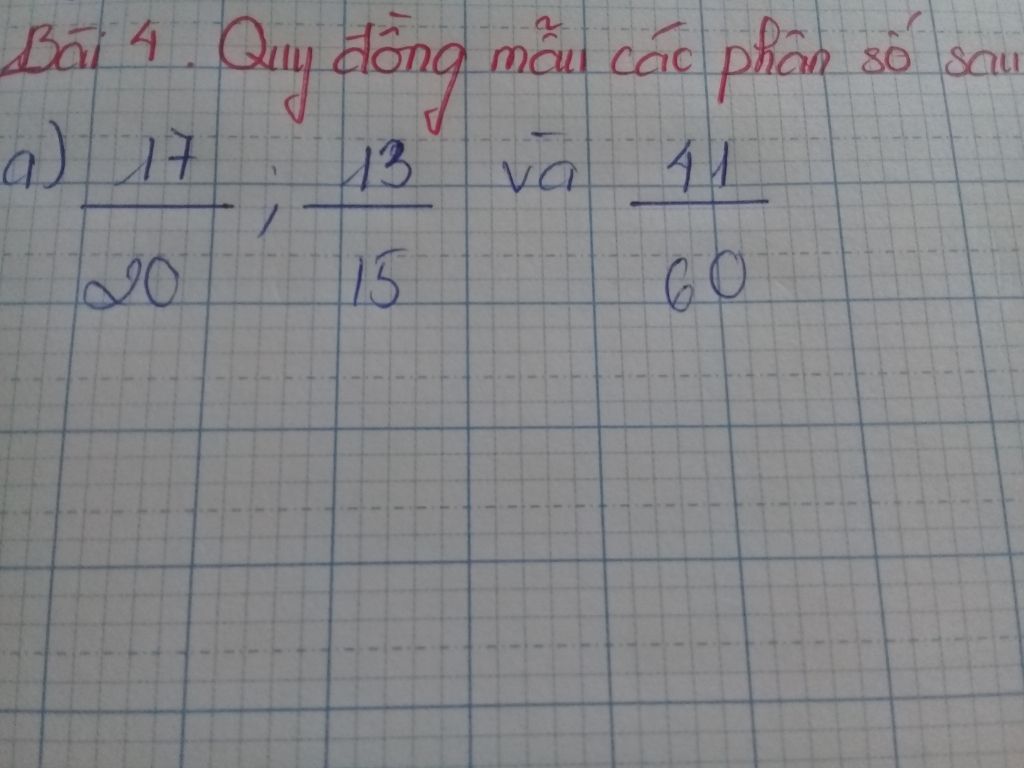 Bài 4. Quy đồng mẫu các phân số sau
a) 17/20 ; 13/15 và 41/60